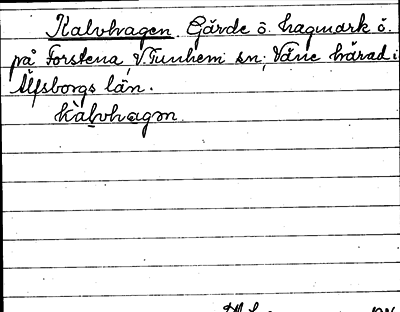 Kalvhagen Gärde o. hagmark ö.
på Forstena, V. Tunhem sn; Väne härad i
Älfsborgs län.
kàlvhagǝn